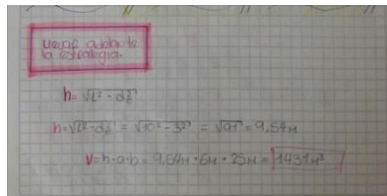 Llevar adelante
la estrategia.
h = √l² - d²
h = √l² - d² = √10² - 3² = √91 = 9,54m
V = h · a · b = 9,54m · 6m · 25m = 1431m³